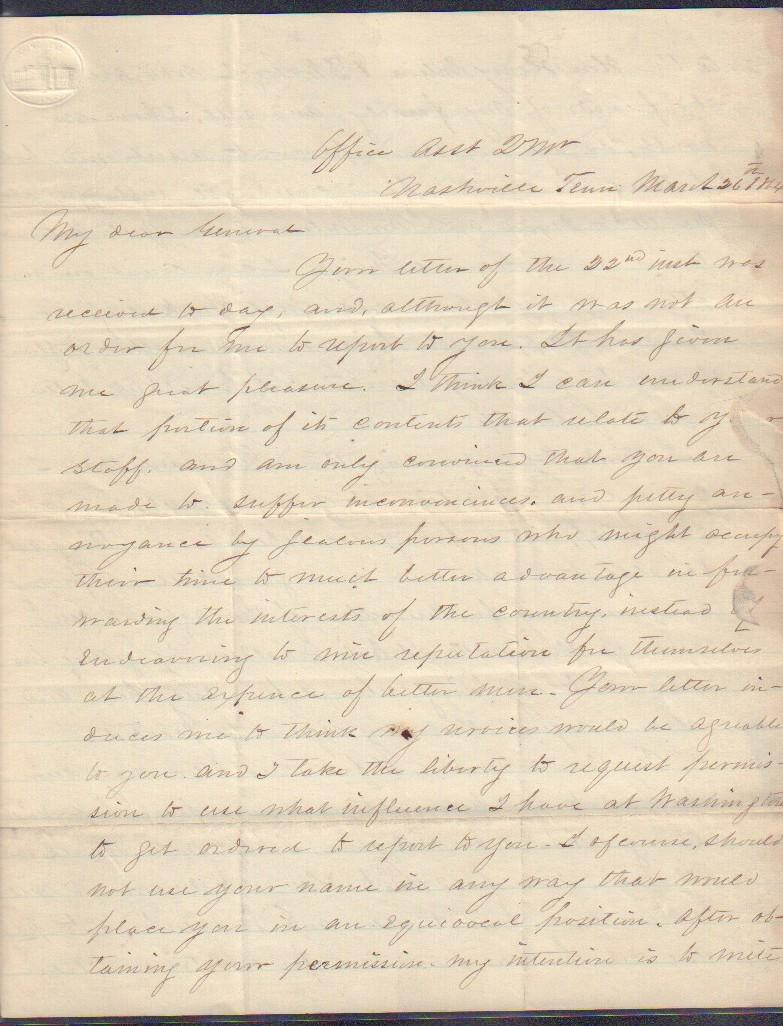 Office Asst Q M
Nashville Tenn March 26th 1864
My dear General
Your letter of the 22nd inst was
received to day, and, although it was not an
order for me to report to you. It has given
me great pleasure. I think I can understand
that portion of its contents that relate to your
staff. and am only convinced that you are
made to suffer inconveniences. and petty an-
noyance by jealous persons who might occupy
their time to much better advantage in for-
warding the interests of the country. instead of
Endeavoring to win reputation for themselves
at the expence of better men - Your letter in-
duces me to think my services would be agreable
to you. and I take the liberty to request permis-
sion to use what influence I have at Washington
to get ordered to report to you - I ofcourse, should
not use your name in any way that would
place you in an equivocal position. After ob-
taining your permission. my intention is to write